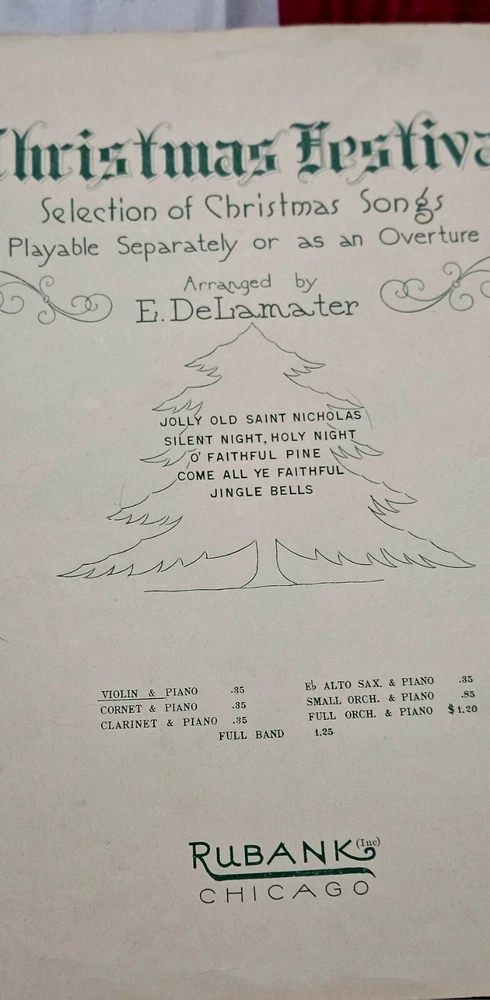 Christmas Festiva
Selection of Christmas Songs
Playable Separately or as an Overture
Arranged by
E. DeLamater
JOLLY OLD SAINT NICHOLAS
SILENT NIGHT, HOLY NIGHT
O' FAITHFUL PINE
COME ALL YE FAITHFUL
JINGLE BELLS
VIOLIN & PIANO .35
CORNET & PIANO .35
CLARINET & PIANO .35
E♭ ALTO SAX. & PIANO .35
SMALL ORCH. & PIANO .85
FULL ORCH. & PIANO $1.20
FULL BAND 1.25
RUBANK (Inc)
CHICAGO